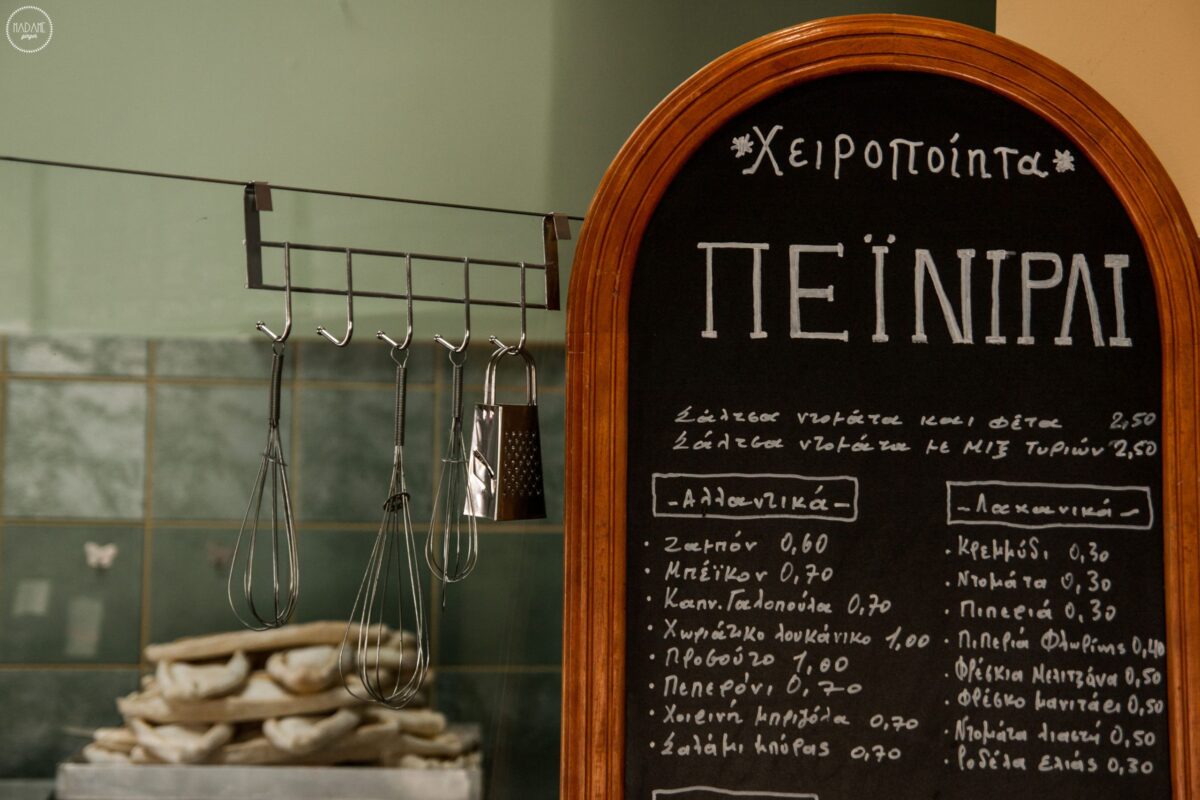 MADAME
ginger
*Χειροποίητα*
ΠΕΪΝΙΡΛΙ
Σάλτσα ντομάτα και φέτα 2,50
Σάλτσα ντομάτα με μιξ τυριών 2,50
-Αλλαντικά-
· Ζαμπόν 0,60
· Μπέϊκον 0,70
· Καπν. Γαλοπούλα 0,70
· Χωριάτικο λουκάνικο 1,00
· Προσούτο 1,00
· Πεπερόνι 0,70
· Χοιρινή μπριζόλα 0,70
· Σαλάμι μπύρας 0,70
-Λαχανικά-
· Κρεμμύδι 0,30
· Ντομάτα 0,30
· Πιπεριά 0,30
· Πιπεριά Φλωρίνης 0,40
· Φρέσκια Μελιτζάνα 0,50
· Φρέσκο μανιτάρι 0,50
· Ντομάτα λιαστή 0,50
· Ροδέλα ελιάς 0,30